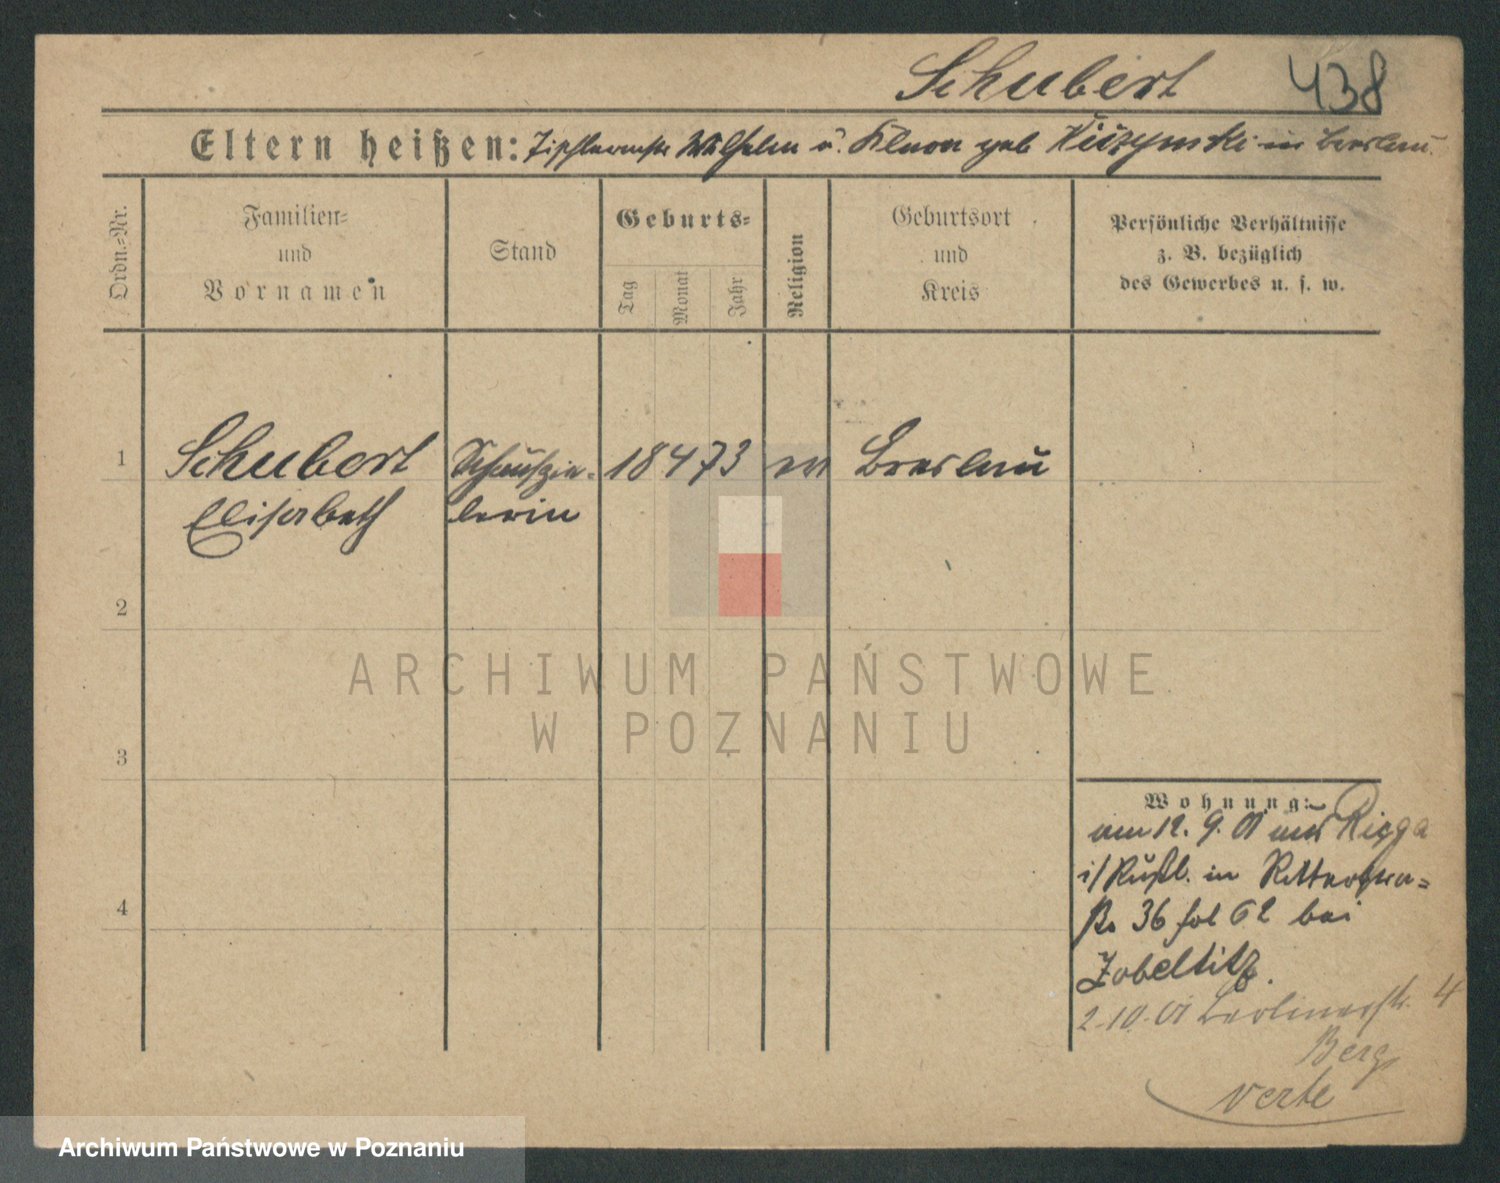 Schubert 438
Eltern heißen: Tischlermstr Wilhelm u. geb in Breslau.
Ordn.=Nr.
Familien=
und
Vornamen
Stand
Geburts=
Tag
Monat
Jahr
Religion
Geburtsort
und
Kreis
Persönliche Verhältnisse
z. B. bezüglich
des Gewerbes u. s. w.
1 Schubert Schauspie= 18 4 73 ev Breslau
Elisabeth lerin
2
3
4
Wohnung:
am 12. 9. 01 aus Riga
i/Rußl. in Ritterstra=
ße 36 fol 62 bei
Zobeltitz.
2.10.01 Berlinerstr. 4
Berg
verte
ARCHIWUM PAŃSTWOWE
W POZNANIU
Archiwum Państwowe w Poznaniu